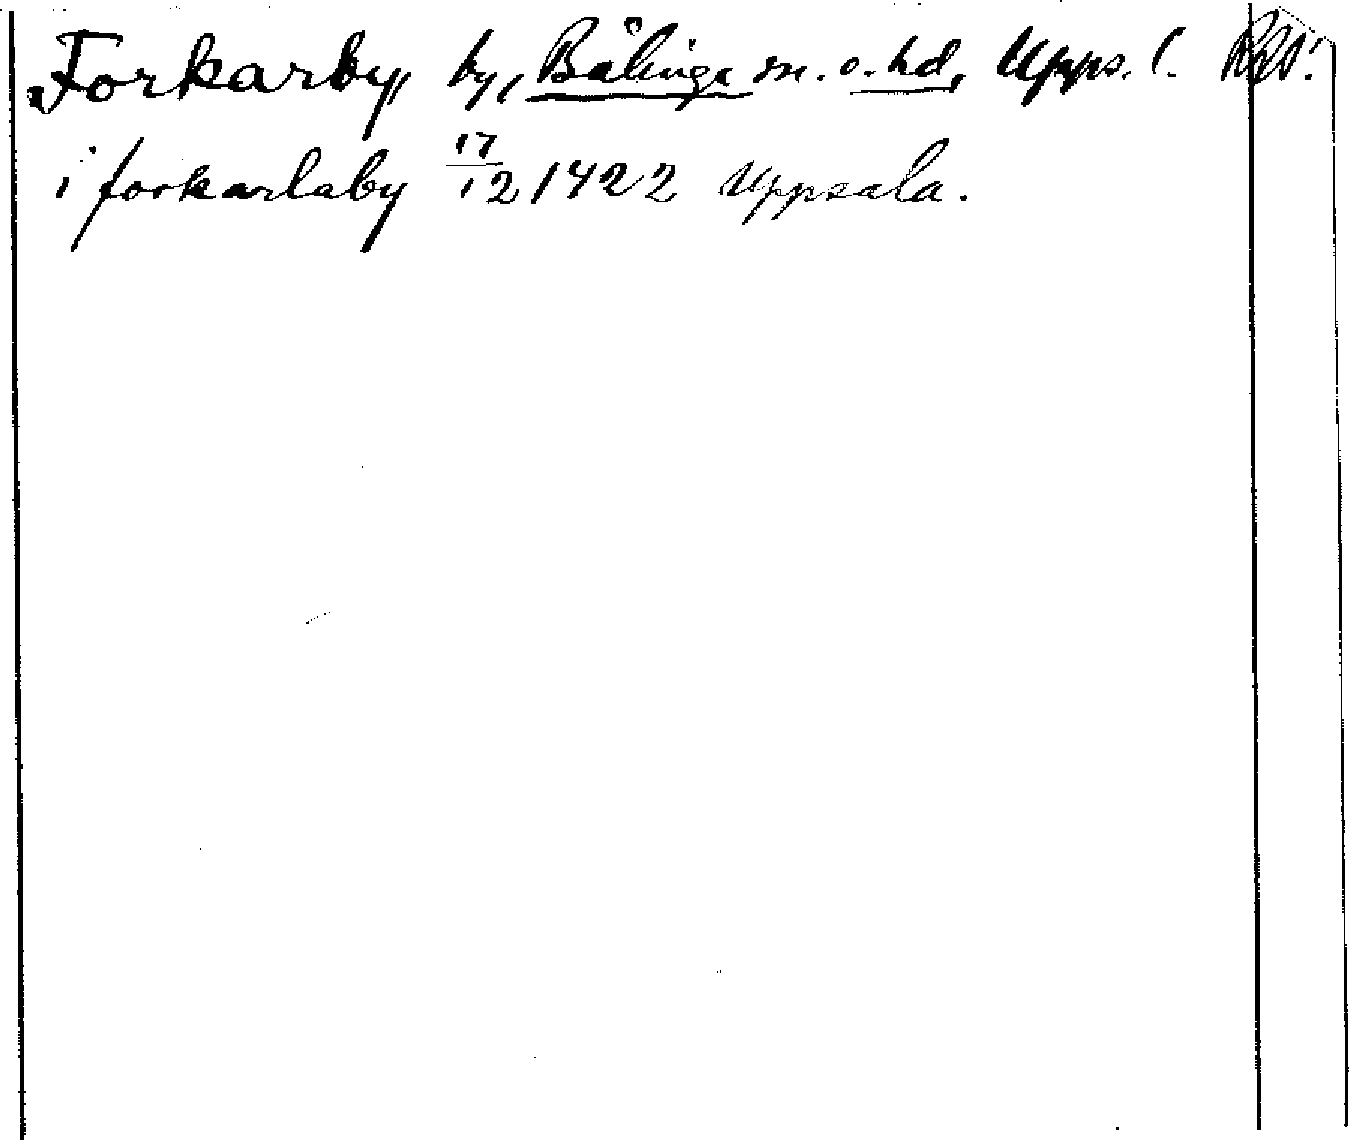 Forkarby, by, Bälinge sn. o. hd, Upps. l.
i forkarlaby 17/12 1422 Uppsala.